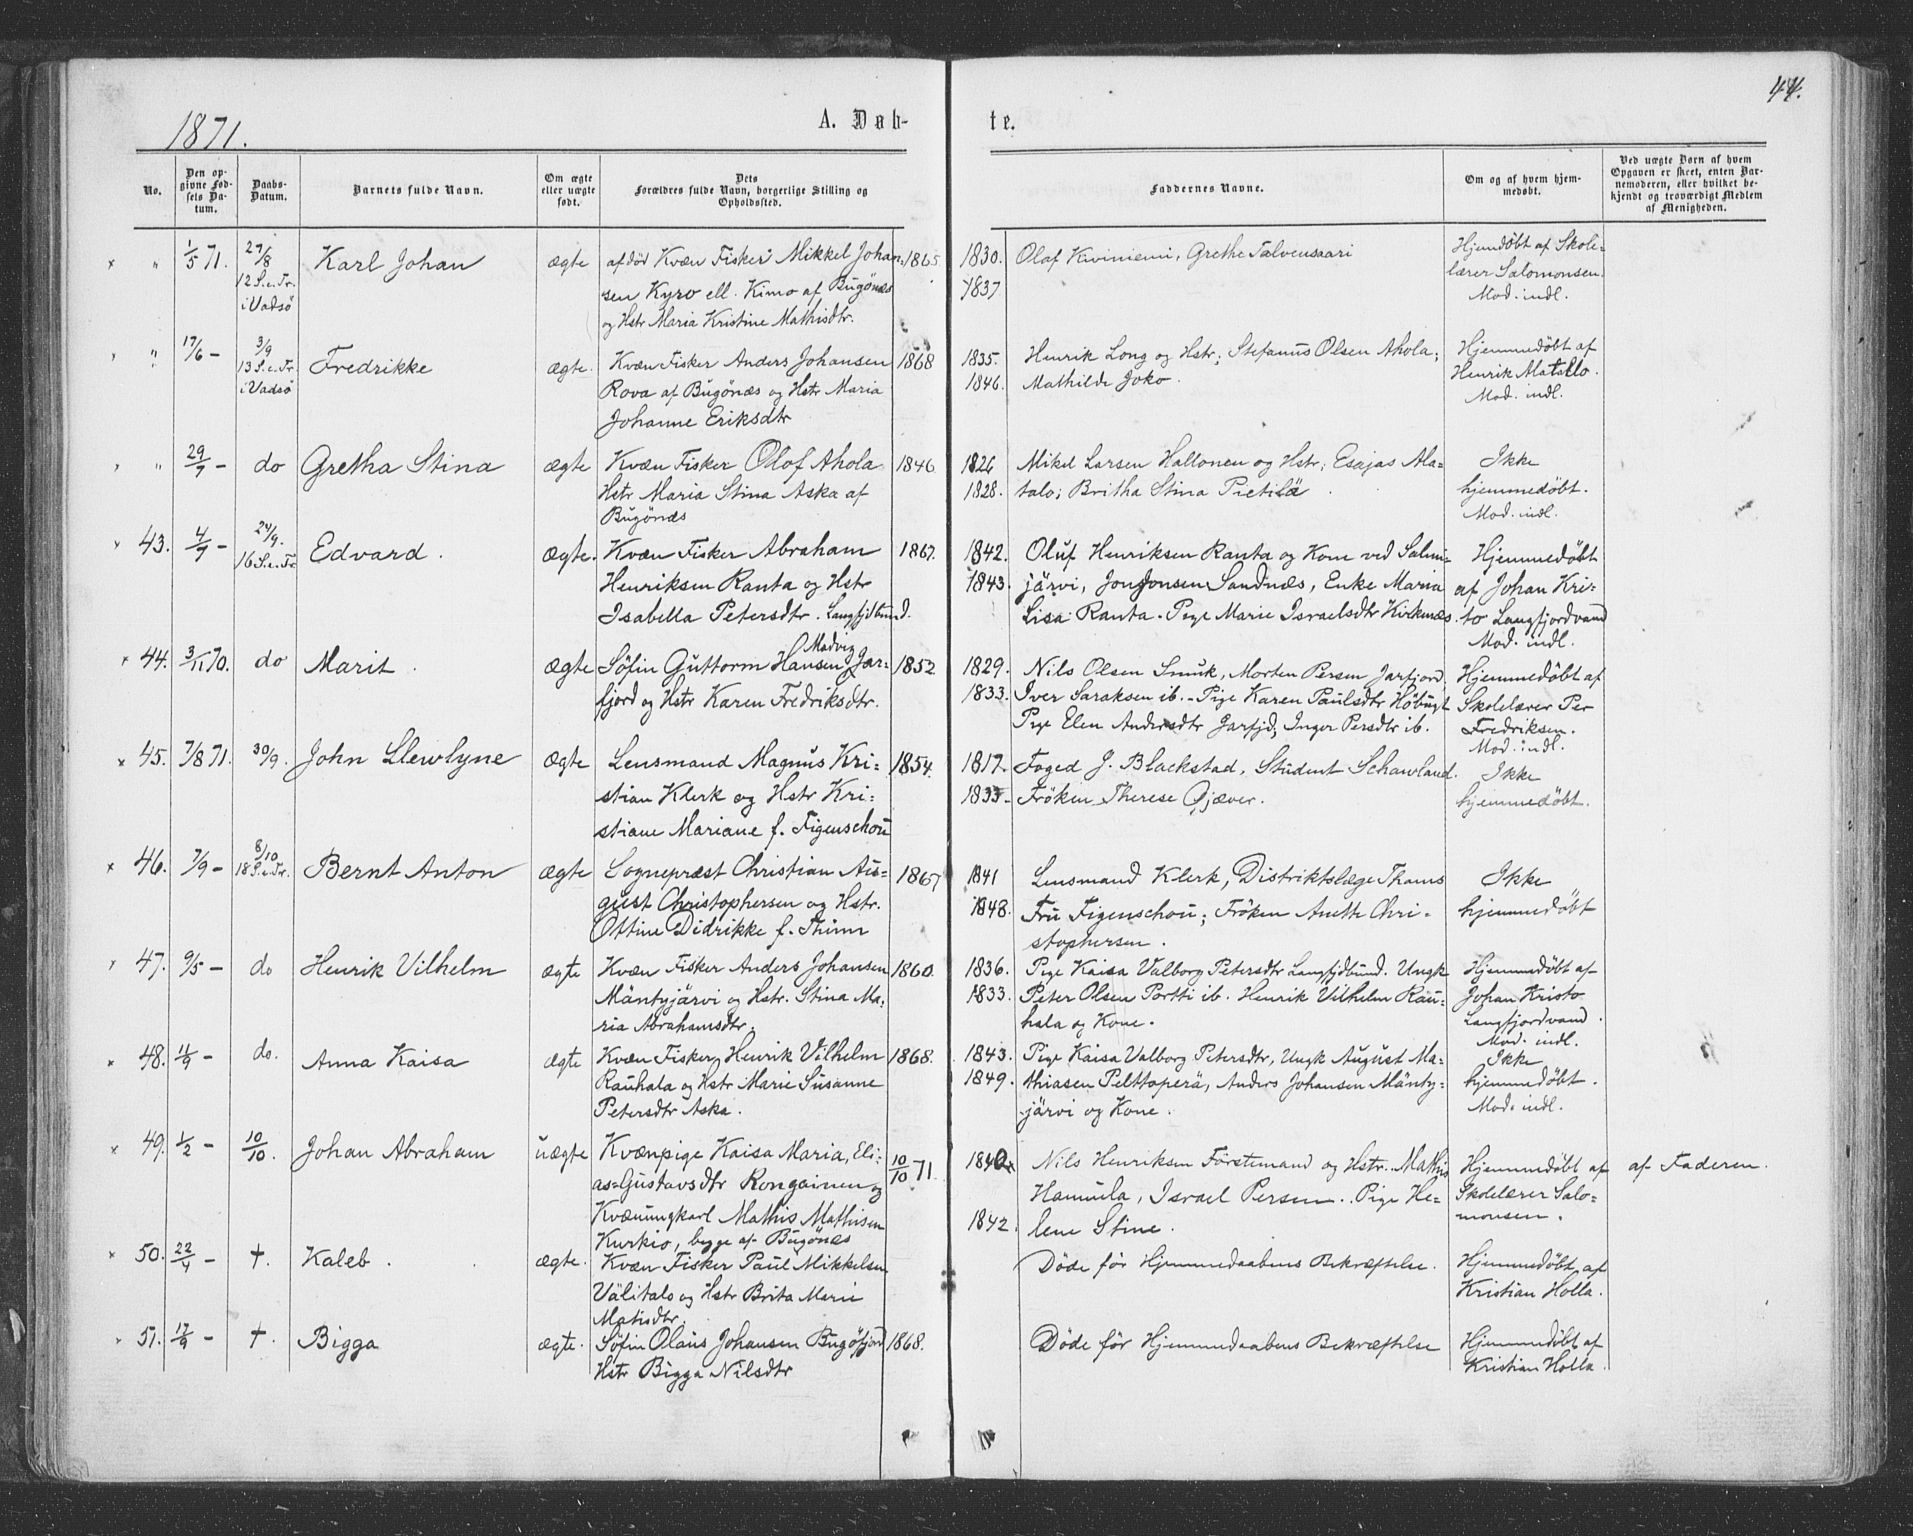 1871.
A. Døb-
te.
44.
No.
Den op-
givne Fød-
sels Da-
tum.
Daabs-
Datum.
Barnets fulde Navn.
Om ægte
eller uægte
født.
Dets
Forældres fulde Navn, borgerlige Stilling og
Opholdssted.
Faddernes Navne.
Om og af hvem hjem-
medøbt.
Ved uægte Børn af hvem
Opgaven er skeet, enten Bar-
nemoderen, eller hvilket be-
kjendt og troværdigt Medlem
af Menigheden.
× " 1/5 71. 27/8
12 S. e. Tr.
i Vadsö
Karl Johan
ægte
afdød Kvæn Fisker Mikkel Johan-
sen Kyrö ell. Kimo af Bugönæs
og Hstr Maria Kristine Mathisdtr.
1865.
1830.
1837
Olaf Kiviniemi, Grethe Talvensaari
Hjemdöbt af Skole-
lærer Salomonsen.
Mod. indl.
" 17/6 – 3/9
13 S. e. Tr.
i Vadsö
Fredrikke
ægte.
Kvæn Fisker Anders Johansen
Rova af Bugönæs og Hstr Maria
Johanne Eriksdtr
1868
1835.
1846.
Henrik Long og Hstr; Stefanus Olsen Ahola;
Mathilde Joko.
Hjemmedöbt af
Henrik Alatalo.
Mod. indl.
" 29/7 – do Gretha Stina
ægte
Kvæn Fisker Olof Ahola
Hstr Maria Stina Aska af
Bugönæs
1846
1826
1828.
Mikel Larsen Hallonen og Hstr; Esajas Ala-
talo; Britha Stina Pietilä.
Ikke
hjemmedöbt.
Mod. indl.
× 43. 4/7 – 24/9.
16 S. e. Tr.
Edvard.
ægte.
Kvæn Fisker Abraham
Henriksen Ranta og Hstr
Isabella Petersdtr. Langfjdbund.
1867.
1842.
1843.
Oluf Henriksen Ranta og Kone ved Salmi-
järvi, Jon Jonsen Sandnæs, Enke Maria
Lisa Ranta. Pige Marie Israelsdtr Kirkenæs.
Hjemmedöbt
af Johan Kri-
to Langfjordvand
Mod. indl.
× 44. 3/11 70. do Marit.
ægte
Söfin Guttorm Hansen Madvig Jar-
fjord og Hstr Karen Fredriksdtr.
1852.
1829.
1833.
Nils Olsen Smuk, Morten Persen Jarfjord.
Iver Saraksen ib. – Pige Karen Paulsdtr Höbugt
Pige Elen Andersdtr Jarfjd, Inger Persdtr ib.
Hjemmedöbt af
Skolelærer Per
Fredriksen.
Mod. indl.
× 45. 7/8 71. 30/9. John Llewlyne
ægte
Lensmand Magnus Kri-
stian Klerk og Hstr Kri-
stiane Mariane f. Figenschou
1854.
1817.
1833.
Foged J. Blackstad, Student Schawland.
Fröken Therese Gjæver.
Ikke
hjemmedöbt.
× 46. 7/9 – 8/10
18 S. e. Tr.
Bernt Anton
ægte
Sognepræst Christian Au-
gust Christophersen og Hstr.
Ottine Didrikke f. Thinn
1867
1841
1848.
Lensmand Klerk, Distriktslæge Thams
Fru Figenschou; Fröken Anette Chri-
stophersen.
Ikke
hjemmedöbt
47. 9/5 – do Henrik Vilhelm
ægte
Kvæn Fisker Anders Johansen
Mäntyjärvi og Hstr. Stina Ma-
ria Abrahamsdtr.
1860.
1836.
1833.
Pige Kaisa Valborg Petersdtr Langfjdbund. Ungk
Peter Olsen Portti ib. Henrik Vilhelm Rau-
hala og Kone.
Hjemmedöbt af
Johan Kristo
Langfjordvand.
Mod. indl.
× 48. 11/9 – do. Anna Kaisa
ægte
Kvæn Fisker Henrik Vilhelm
Rauhala og Hstr Marie Susanne
Petersdtr Aska.
1868.
1843.
1849.
Pige Kaisa Valborg Petersdtr, Ungk August Ma-
thiasen Pelttoperä, Anders Johansen Mänty-
järvi og Kone.
Ikke
hjemmedöbt.
Mod. indl.
× 49. 1/2 – 10/10. Johan Abraham
uægte
Kvænpige Kaisa Maria, Eli-
as-Gustavsdtr Rongainen og
Kvænungkarl Mathis Mathisen
Kurkio, begge af Bugönæs
10/10 71.
1840
1842.
Nils Henriksen Förstemand og Hstr. Mathis
Hamula, Israel Persen. Pige He-
lene Stine.
Hjemmedöbt af
Skolelærer Salo-
monsen.
af Faderen.
× 50. 22/4 – †. Kaleb.
ægte.
Kvæn Fisker Paul Mikkelsen
Välitalo og Hstr Brita Marie
Matisdtr.
Döde för Hjemmedaabens Bekræftelse.
Hjemmedöbt af
Kristian Holla.
51. 17/9 – †. Bigga
ægte.
Söfin Olaus Johansen Bugöfjord
Hstr Bigga Nilsdtr
1868.
Döde för Hjemmedaabens Bekræftelse
Hjemmedöbt af
Kristian Holla.